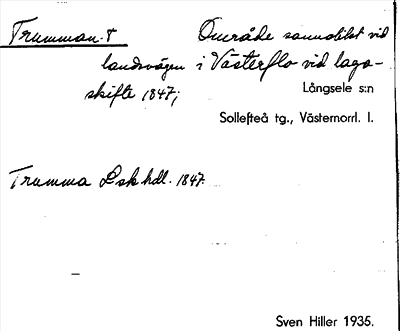 Trumman. † Område sannolikt vid
landsvägen i Västerflo vid laga-
skifte 1847;
Långsele s:n
Sollefteå tg., Västernorrl. l.
Trumma Lsk hdl. 1847.
Sven Hiller 1935.